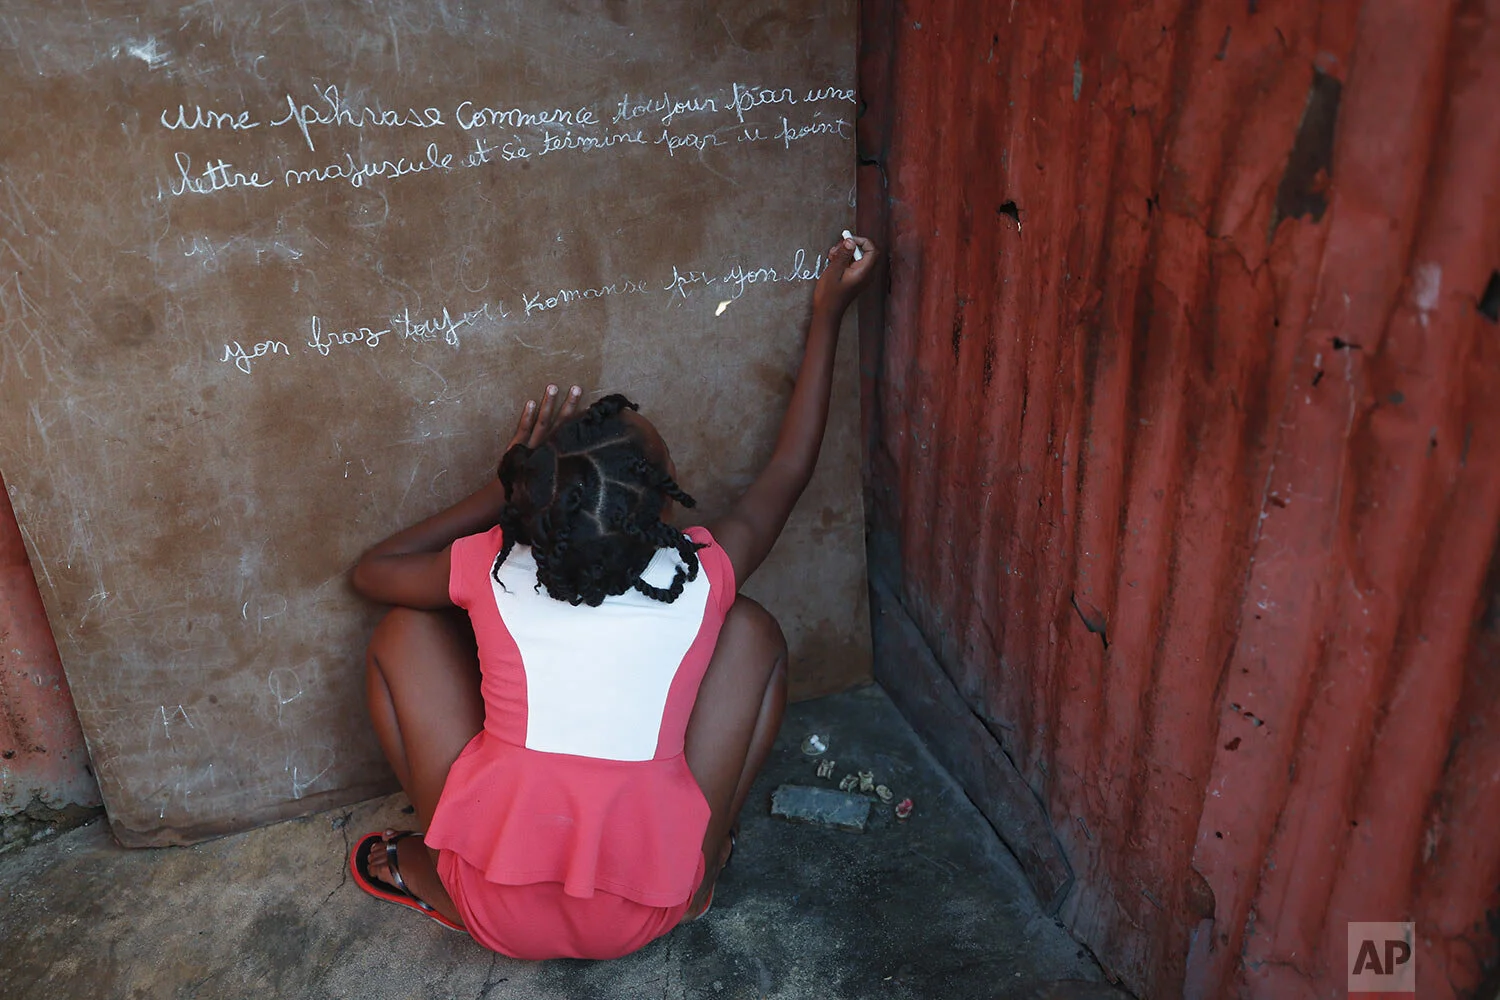 Une phrase commence toujour par une
lettre majuscule et se termine par u point
yon fraz toujou komanse pa yon let
M
P
AP